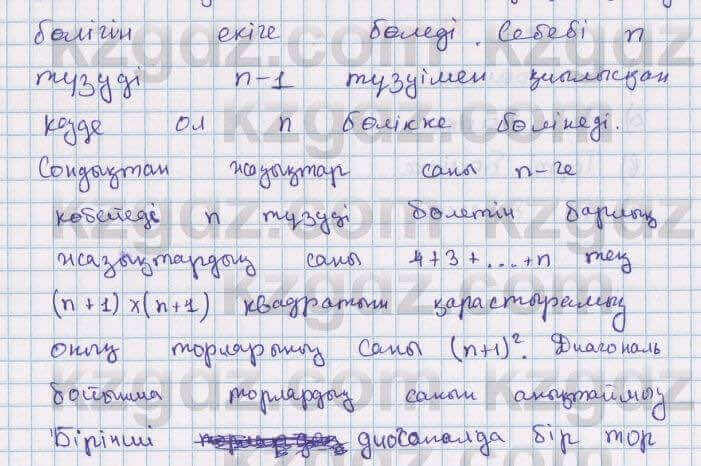 бөлігін екіге бөледі. Себебі n
түзуді n-1 түзуімен қиылысқан
кезде ол n бөлікке бөлінеді.
Сондықтан жазықтар саны n-ге
көбейеді n түзуді бөлетін барлық
жазықтардың саны 4+3+...+n тең
(n+1)x(n+1) квадратын қарастырамыз
оның торларының саны (n+1)². Диагональ
бойынша торлардың санын анықтаймыз
Бірінші диоганалда бір тор
kzgdz.com